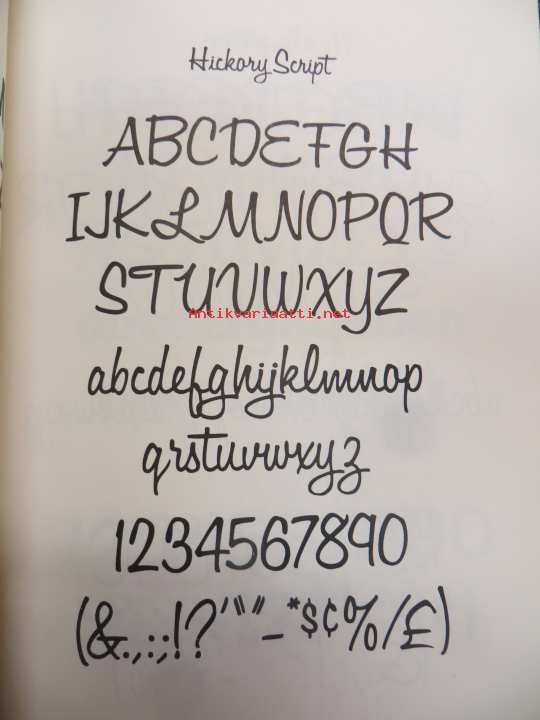 Hickory Script
ABCDEFGH
IJKLMNOPQR
STUVWXYZ
Antikvariaatti.net
abcdefghijklmnop
qrstuvwxyz
1234567890
(&.,:;!?'“”-*$¢%/£)